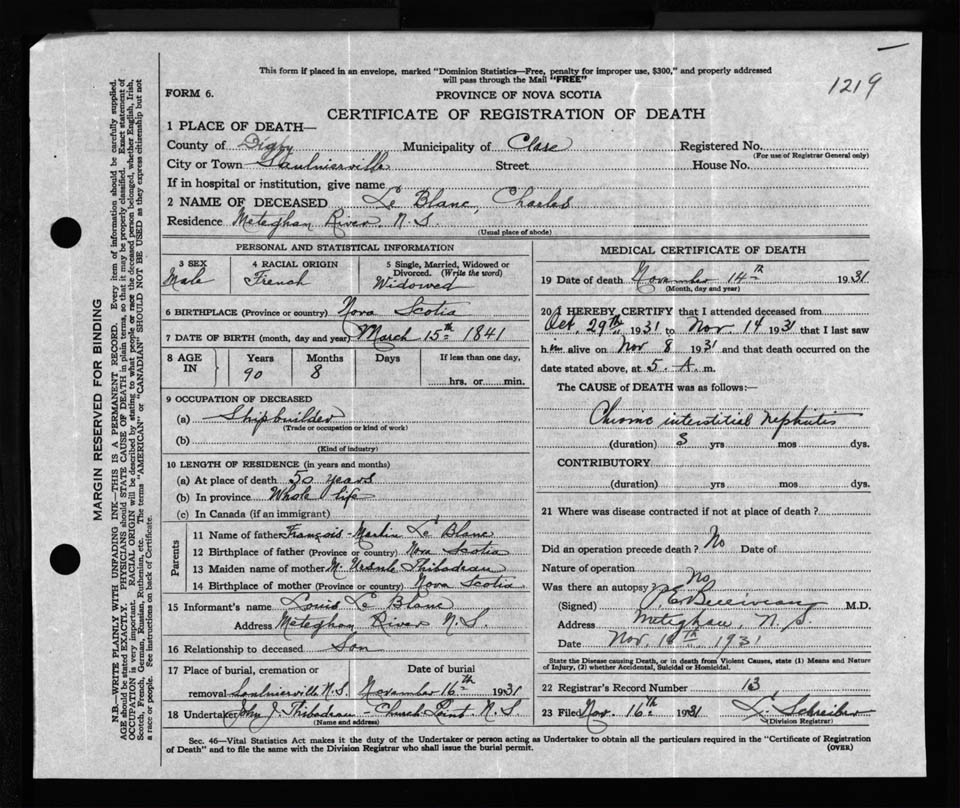 1219
This form if placed in an envelope, marked "Dominion Statistics—Free, penalty for improper use, $300," and properly addressed
will pass through the Mail "FREE"
FORM 6.
PROVINCE OF NOVA SCOTIA
CERTIFICATE OF REGISTRATION OF DEATH
1 PLACE OF DEATH—
County of Digby Municipality of Clare Registered No.
(For use of Registrar General only)
City or Town Saulnierville Street House No.
If in hospital or institution, give name
2 NAME OF DECEASED Le Blanc, Charles
Residence Meteghan River, N.S.
(Usual place of abode)
PERSONAL AND STATISTICAL INFORMATION
3 SEX
Male
4 RACIAL ORIGIN
French
5 Single, Married, Widowed or
Divorced. (Write the word)
Widowed
6 BIRTHPLACE (Province or country) Nova Scotia
7 DATE OF BIRTH (month, day and year) March 15th 1841
8 AGE IN Years Months Days If less than one day,
90 8
hrs. or min.
9 OCCUPATION OF DECEASED
(a) Shipbuilder
(Trade or occupation or kind of work)
(b)
(Kind of industry)
10 LENGTH OF RESIDENCE (in years and months)
(a) At place of death 50 years
(b) In province Whole life
(c) In Canada (if an immigrant)
Parents
11 Name of father François-Martin Le Blanc
12 Birthplace of father (Province or country) Nova Scotia
13 Maiden name of mother M. Thibodeau
14 Birthplace of mother (Province or country) Nova Scotia
15 Informant's name Louis Le Blanc
Address Meteghan River N.S.
16 Relationship to deceased Son
17 Place of burial, cremation or Date of burial
removal Saulnierville N.S. November 16th 1931
18 Undertaker John J. Thibodeau - Church Point N.S.
(Name and address)
MEDICAL CERTIFICATE OF DEATH
19 Date of death November 14th 1931
(Month, day and year)
20 I HEREBY CERTIFY that I attended deceased from
Oct. 29th 1931 to Nov 14 1931 that I last saw
him alive on Nov 8 1931 and that death occurred on the
date stated above, at 5. A. m.
The CAUSE OF DEATH was as follows:
Chronic interstitial nephritis
(duration) 3 yrs mos dys.
CONTRIBUTORY
(duration) yrs. mos. dys.
21 Where was disease contracted if not at place of death?
Did an operation precede death? No Date of
Nature of operation
Was there an autopsy? No
(Signed) M.D.
Address Meteghan, N.S.
Date Nov. 1931
State the Disease causing Death, or in death from Violent Causes, state (1) Means and Nature
of Injury, (2) whether Accidental, Suicidal or Homicidal.
22 Registrar's Record Number 13
23 Filed Nov. 16th 1931 L. Schreiber
(Division Registrar)
Sec. 46—Vital Statistics Act makes it the duty of the Undertaker or person acting as Undertaker to obtain all the particulars required in the "Certificate of Registration
of Death" and to file the same with the Division Registrar who shall issue the burial permit.
(OVER)
MARGIN RESERVED FOR BINDING
N.B.—WRITE PLAINLY WITH UNFADING INK—THIS IS A PERMANENT RECORD. Every item of information should be carefully supplied.
AGE should be stated EXACTLY. PHYSICIANS should STATE CAUSE OF DEATH in plain terms, so that it may be properly classified. Exact statement of
OCCUPATION is very important. RACIAL ORIGIN will be described by stating to what people or race the deceased person belonged, whether English, Irish,
Scotch, French, German, Russian, Ruthenian, etc. The terms "AMERICAN" or "CANADIAN" SHOULD NOT BE USED as they express citizenship but not
a race or people. See instructions on back of Certificate.